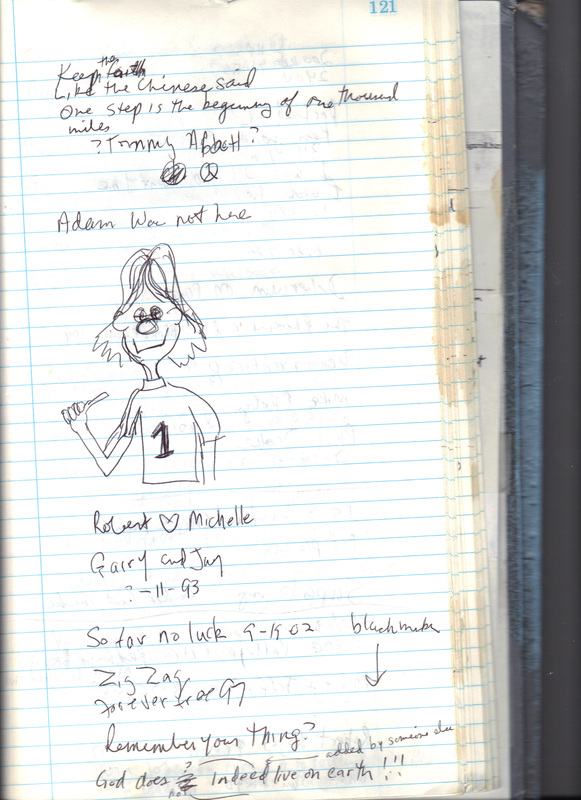 121
Keep the faith
Like the Chinese said
One step is the beginning of one thousand
miles
?Tommy Abbott?
Adam was not here
1
Robert ♡ Michelle
Garry and Jay
?-11-93
So far no luck 9-19-02
Zig Zag
Forever free 97
Remember your thing?
added by someone else
God does ? not indeed live on earth!!!